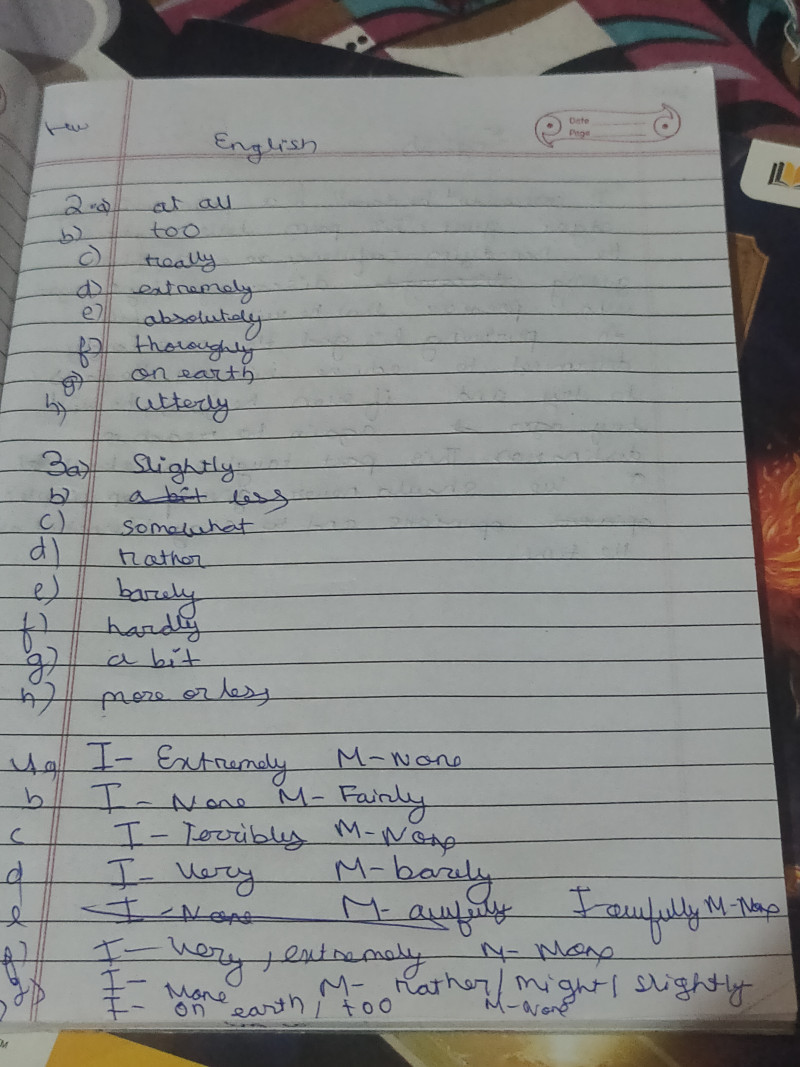 HW
English
Date
Page
2 a) at all
b) too
c) really
d) extremely
e) absolutely
f) thoroughly
g) on earth
h) utterly
3a) Slightly
b) a bit less
c) somewhat
d) rather
e) barely
f) hardly
g) a bit
h) more or less
4a) I- Extremely M-None
b I - None M- Fairly
c I - Terribly M-None
d I- Very M-barely
e I - None M- awfully I-awfully M-None
f) I- Very, extremely M- None
g) I- None M- rather/might/slightly
I- on earth, too M-None